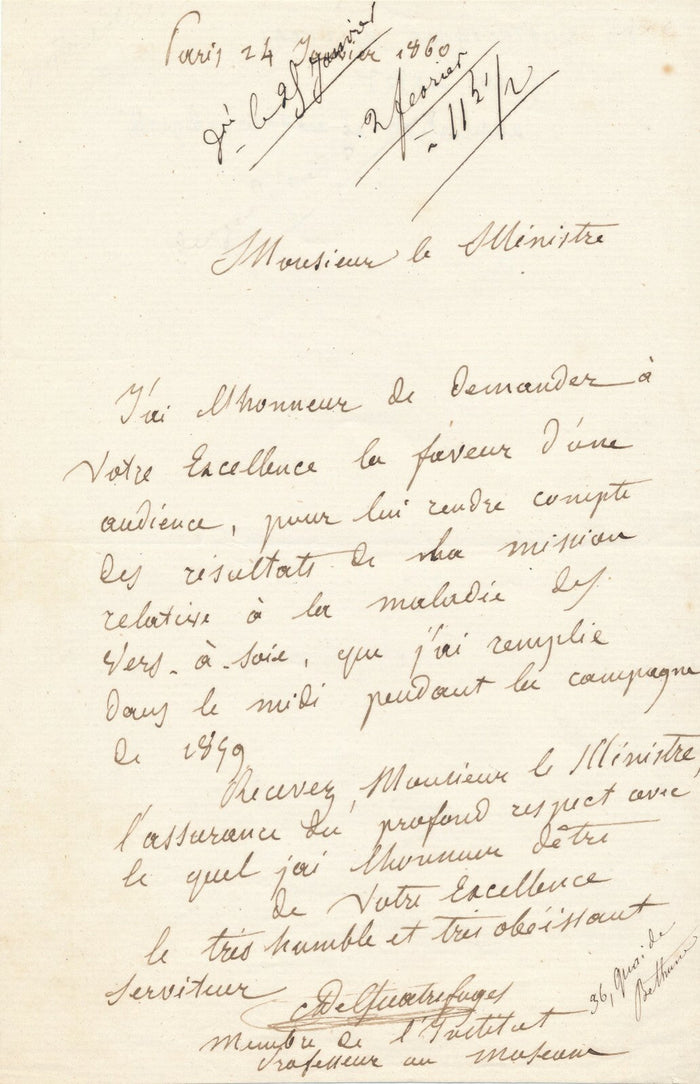 Paris 24 Janvier 1860
le 25 Janvier
2 fevrier
11 h 1/2
Monsieur le Ministre
J'ai l'honneur de demander à
Votre Excellence la faveur d'une
audience, pour lui rendre compte
des résultats de ma mission
relative à la maladie des
Vers-à-soie, que j'ai remplie
dans le midi pendant la campagne
de 1859
Recevez, Monsieur le Ministre,
l'assurance du profond respect avec
le quel j'ai l'honneur d'être
de Votre Excellence
le très humble et très obéissant
serviteur
A De Quatrefages
membre de l'Institut
Professeur au museum
36, quai de
Bethune